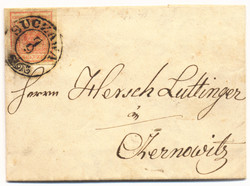 SUCZAWA
Herrn Hersch Luttinger
in
Czernowitz